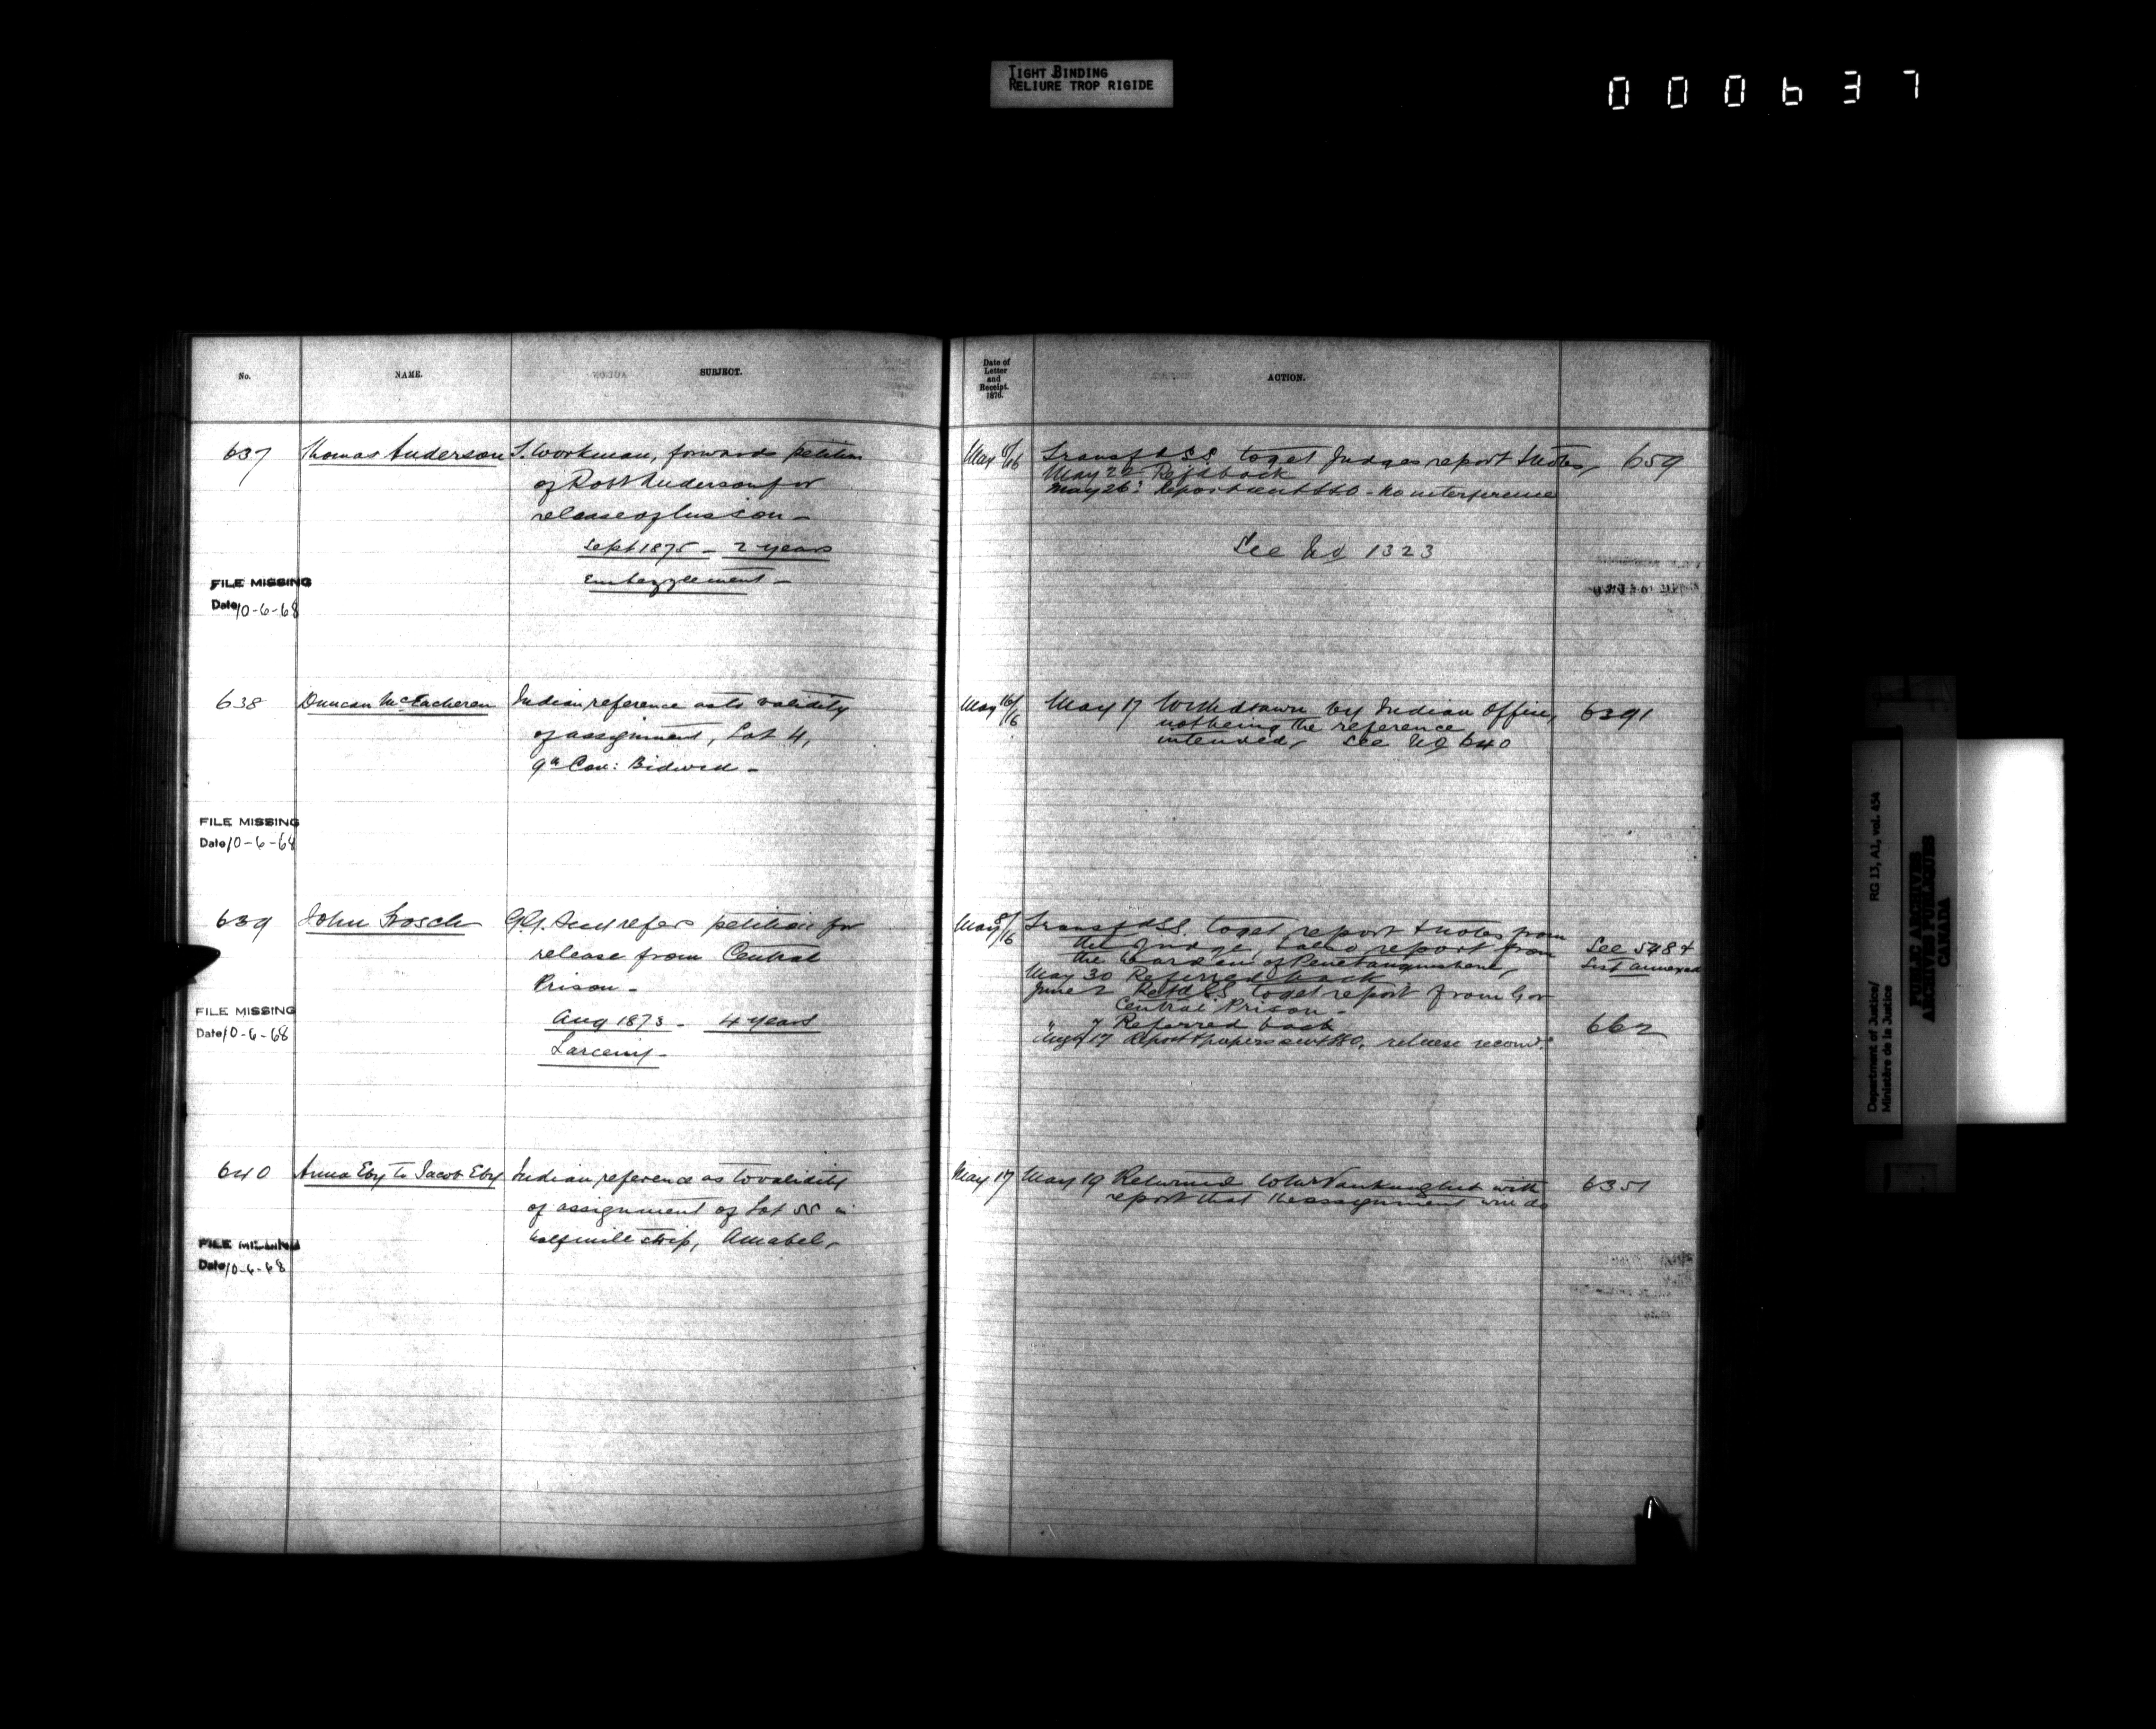 TIGHT BINDING
RELIURE TROP RIGIDE
000637
No.
NAME.
SUBJECT.
Date of
Letter
and
Receipt.
1876.
ACTION.
637
Thomas Anderson
T. Workman, forwards petition
of Robt Anderson for
release of his son -
Sept 1875 - 2 years
Embezzlement -
FILE MISSING
Date 10-6-68
May /16
Transfd SS to get Judges report & notes,
May 22 Refd back
May 26: Report sent SSO - no interference
See No 1323
659
638
Duncan McEacheren
Indian reference as to validity
of assignment, Lot 4,
9th Con: Bidwell -
FILE MISSING
Date 10-6-68
May 16/16
May 17 Withdrawn by Indian Office,
not being the reference
intended, See No 640
6391
639
John Frosch
G.G. Secy refers petition for
release from Central
Prison -
Aug 1873 - 4 years
Larceny -
FILE MISSING
Date 10-6-68
May 8/16
Transfd SS. to get report & notes from
the Judge, & also report from
the Warden of Penetanguishene,
May 30 Referred back
June 2 Refd SS to get report from Gov
Central Prison -
" 7 Referred back
Augt 17 Report & papers sent SSO, release recomd.
See 5484
List annexed
662
640
Anna Eby to Jacob Eby
Indian reference as to validity
of assignment of Lot 55 in
half mile strip, Amabel,
FILE MISSING
Date 10-6-68
May 17
May 19 Returned to Mr Vankoughnet with
report that the assignment will do
6351
Department of Justice/
Ministère de la Justice
RG 13, A1, vol. 454
PUBLIC ARCHIVES
ARCHIVES PUBLIQUES
CANADA